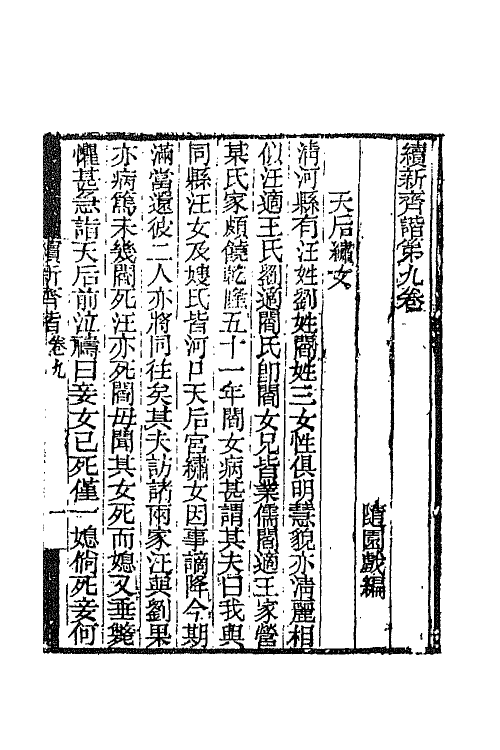 續新齊諧第九卷
隨園戲編
天后繡女
清河縣有汪姓劉姓閻姓三女性俱明慧貌亦清麗相
似汪適王氏劉適閻氏即閻女兄皆業儒閻適王家營
某氏家頗饒乾隆五十一年閻女病甚謂其夫曰我與
同縣汪女及嫂氏皆河口天后宮繡女因事謫降今期
滿當還彼二人亦將同往矣其夫訪諸兩家汪與劉果
亦病篤未幾閻死汪亦死閻毋聞其女死而媳又垂斃
懼甚急詣天后前泣禱曰妾女已死僅一媳倘死妾何
續新齊諧 卷九
一